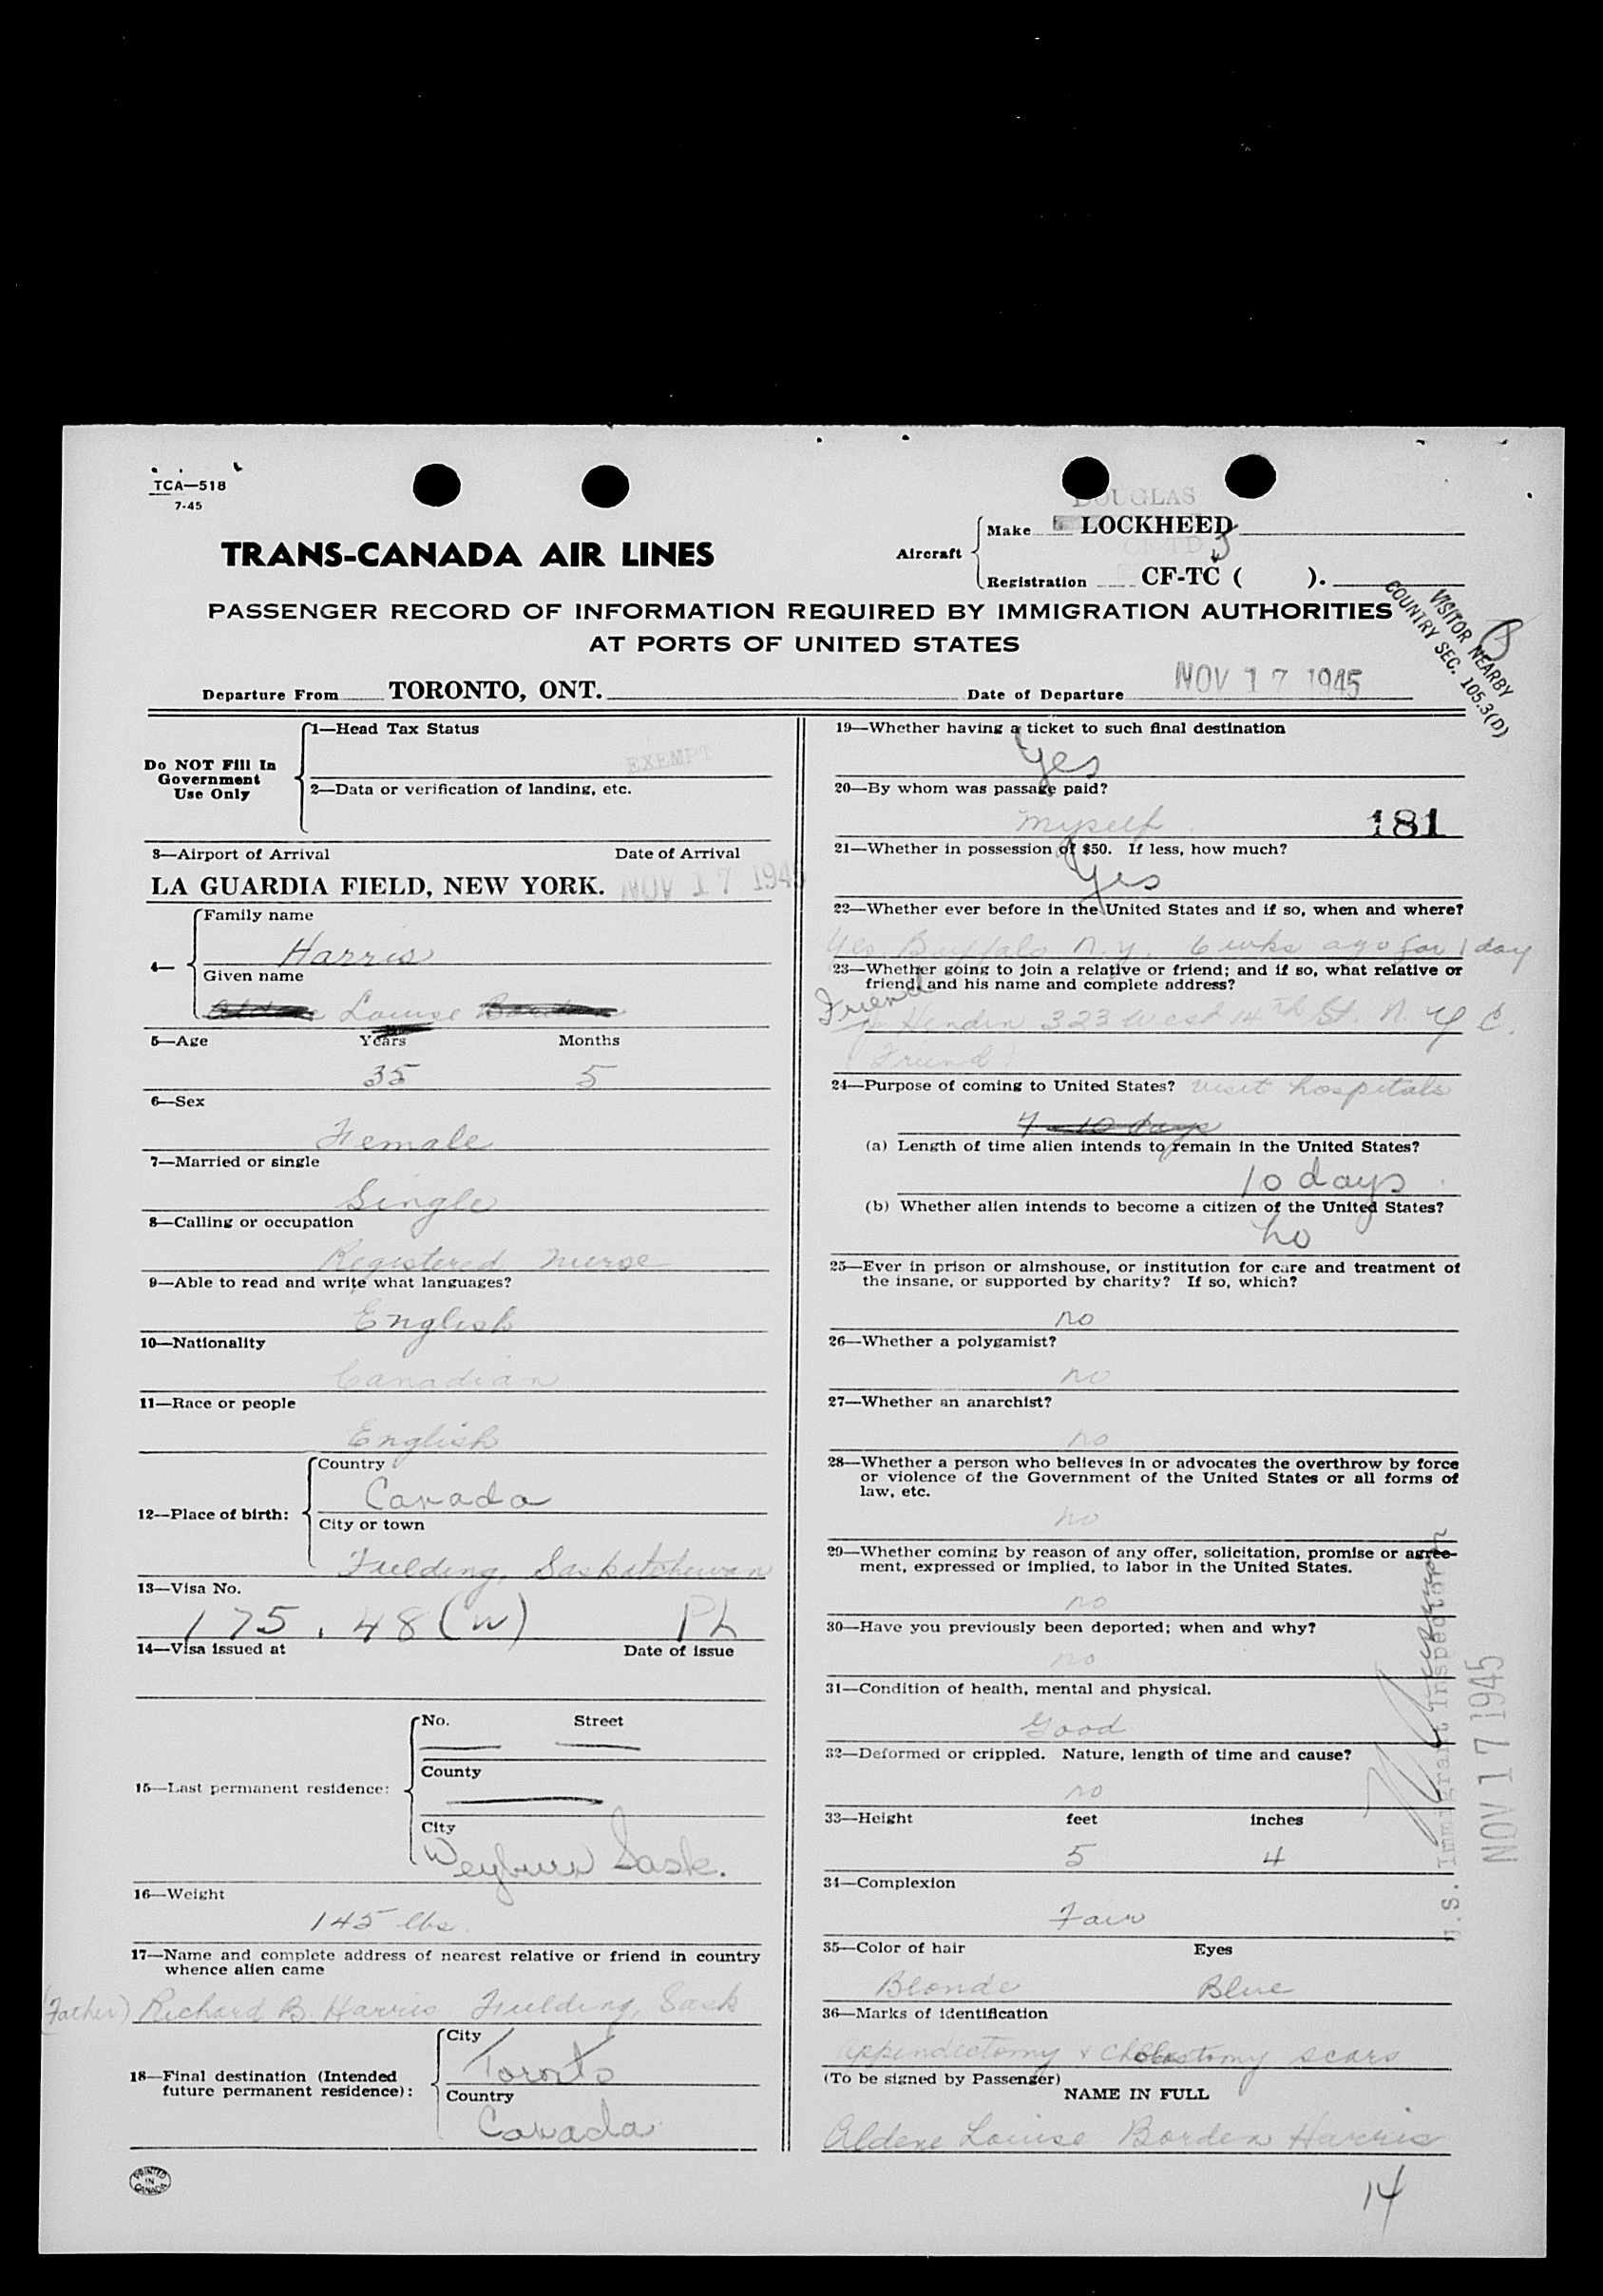 TCA—518
7-45
DOUGLAS
Aircraft
Make LOCKHEED
CF-TD
Registration CF-TC ( ).
TRANS-CANADA AIR LINES
PASSENGER RECORD OF INFORMATION REQUIRED BY IMMIGRATION AUTHORITIES
AT PORTS OF UNITED STATES
VISITOR NEARBY
COUNTRY SEC. 105.3(D)
Departure From TORONTO, ONT. Date of Departure NOV 17 1945
Do NOT Fill In
Government
Use Only
1—Head Tax Status
EXEMPT
2—Data or verification of landing, etc.
3—Airport of Arrival Date of Arrival
LA GUARDIA FIELD, NEW YORK. NOV 17 194
4—
Family name
Harris
Given name
Louise
5—Age Years Months
35 5
6—Sex
Female
7—Married or single
Single
8—Calling or occupation
Registered Nurse
9—Able to read and write what languages?
English
10—Nationality
Canadian
11—Race or people
English
12—Place of birth:
Country
Canada
City or town
Fielding, Saskatchewan
13—Visa No.
175.48 (w) Ph
14—Visa issued at Date of issue
15—Last permanent residence:
No. Street
County
City
Weyburn Sask.
16—Weight
145 lbs.
17—Name and complete address of nearest relative or friend in country
whence alien came
(Father) Richard B. Harris Fielding, Sask
18—Final destination (Intended
future permanent residence):
City
Toronto
Country
Canada
PRINTED
IN
CANADA
19—Whether having a ticket to such final destination
Yes
20—By whom was passage paid?
myself 181
21—Whether in possession of $50. If less, how much?
Yes
22—Whether ever before in the United States and if so, when and where?
Yes. Buffalo N.Y. 6 wks ago for 1 day
23—Whether going to join a relative or friend; and if so, what relative or
friend, and his name and complete address?
Friend
Hendin 323 West 14th St. N.Y.C.
Friend
24—Purpose of coming to United States? visit hospitals
7-10 days
(a) Length of time alien intends to remain in the United States?
10 days
(b) Whether alien intends to become a citizen of the United States?
no
25—Ever in prison or almshouse, or institution for care and treatment of
the insane, or supported by charity? If so, which?
no
26—Whether a polygamist?
no
27—Whether an anarchist?
no
28—Whether a person who believes in or advocates the overthrow by force
or violence of the Government of the United States or all forms of
law, etc.
no
29—Whether coming by reason of any offer, solicitation, promise or agree-
ment, expressed or implied, to labor in the United States.
no
30—Have you previously been deported; when and why?
no
31—Condition of health, mental and physical.
Good
32—Deformed or crippled. Nature, length of time and cause?
no
33—Height feet inches
5 4
34—Complexion
Fair
35—Color of hair Eyes
Blonde Blue
36—Marks of identification
appendectomy & scars
(To be signed by Passenger)
NAME IN FULL
Aldene Louise Borden Harris
14
U.S. Immigrant Inspector
NOV 17 1945